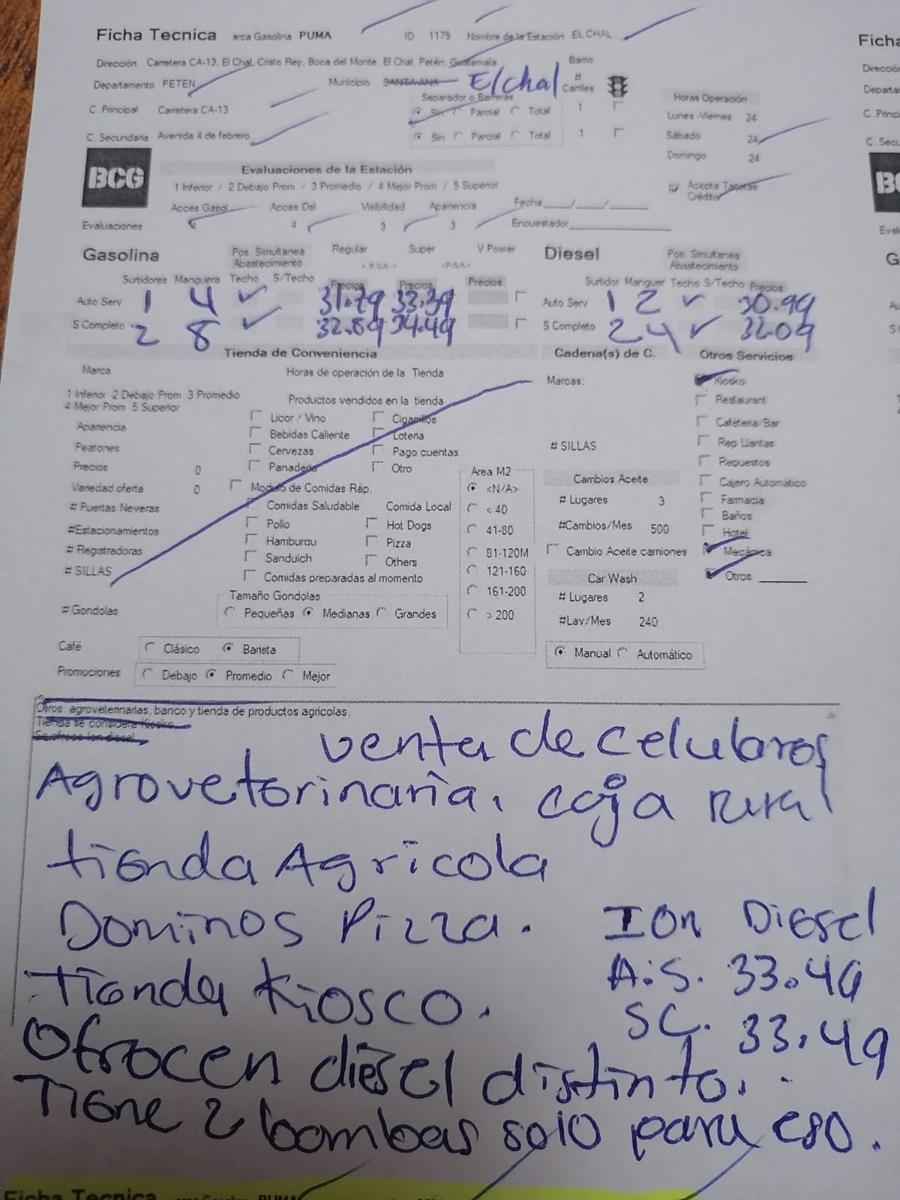 Ficha Tecnica arca Gasolina PUMA ID 1179 Nombre de la Estación EL CHAL
Ficha
Dirección Carretera CA-13, El Chal, Cristo Rey, Boca del Monte, El Chal, Petén, Guatemala
Barrio
Direcció
Departamento PETEN Municipio SANTA ANA El chal # Carriles
Departa
C. Principal Carretera CA-13
Separador o Barreras
Sin Parcial Total 1
Horas Operación
Lunes -Viernes 24
C. Princ
C. Secundaria Avenida 4 de febrero
Sin Parcial Total 1
Sábado 24
C. Secu
Domingo 24
BCG
Evaluaciones de la Estación
1 Inferior / 2 Debajo Prom / 3 Promedio / 4 Mejor Prom / 5 Superior
Acepta Tarjetas Crédito
Acces Gasol Acces Dsl Visibilidad Apariencia Fecha___/___/___
Evaluaciones 4 3 3 Encuestador
Eval
Gasolina Pos. Simultanea Abastecimiento Regular Super V Power
Diesel Pos. Simultanea Abastecimiento
G
Surtidores Manguera Techo S/Techo Precios Precios Precios
Surtidor Manguer Techo S/Techo Precios
Auto Serv 1 4 ✓ 31.79 33.39
Auto Serv 1 2 ✓ 30.99
S Completo 2 8 ✓ 32.89 34.49
S Completo 2 4 ✓ 32.09
Tienda de Conveniencia
Cadena(s) de C.
Otros Servicios
Marca Horas de operación de la Tienda
Marcas:
Kiosko
1 Inferior 2 Debajo Prom 3 Promedio
4 Mejor Prom 5 Superior
Productos vendidos en la tienda
Restaurant
Apariencia Licor / Vino Cigarrillos
Cafeteria/Bar
Peatones Bebidas Caliente Loteria
# SILLAS
Rep Llantas
Precios 0 Cervezas Pago cuentas
Repuestos
Panaderia Otro
Area M2
Cambios Aceite
Cajero Automático
Variedad oferta 0 Modulo de Comidas Ráp.
<N/A>
# Lugares 3
Farmacia
# Puertas Neveras Comidas Saludable Comida Local
< 40
Baños
#Estacionamientos Pollo Hot Dogs
41-80
#Cambios/Mes 500
Hotel
# Registradoras Hamburqu Pizza
81-120M
Cambio Aceite camiones
Mecánica
# SILLAS Sanduich Others
121-160
Car Wash
Otros
Comidas preparadas al momento
161-200
# Lugares 2
# Gondolas Tamaño Gondolas
Pequeñas Medianas Grandes
> 200
#Lav/Mes 240
Café Clásico Barista
Manual Automático
Promociones Debajo Promedio Mejor
Otros: agroveterinarias, banco y tienda de productos agricolas.
Tienda se considera Kiosko
Se ofrece Ion diesel
venta de celulares
Agroveterinaria. caja rural
tienda Agricola
Dominos Pizza. ION Diesel
A.S. 33.49
Tienda Kiosco.
SC. 33.49
Ofrecen diesel distinto.
Tiene 2 bombas solo para eso.
Ficha Tecnica PUMA